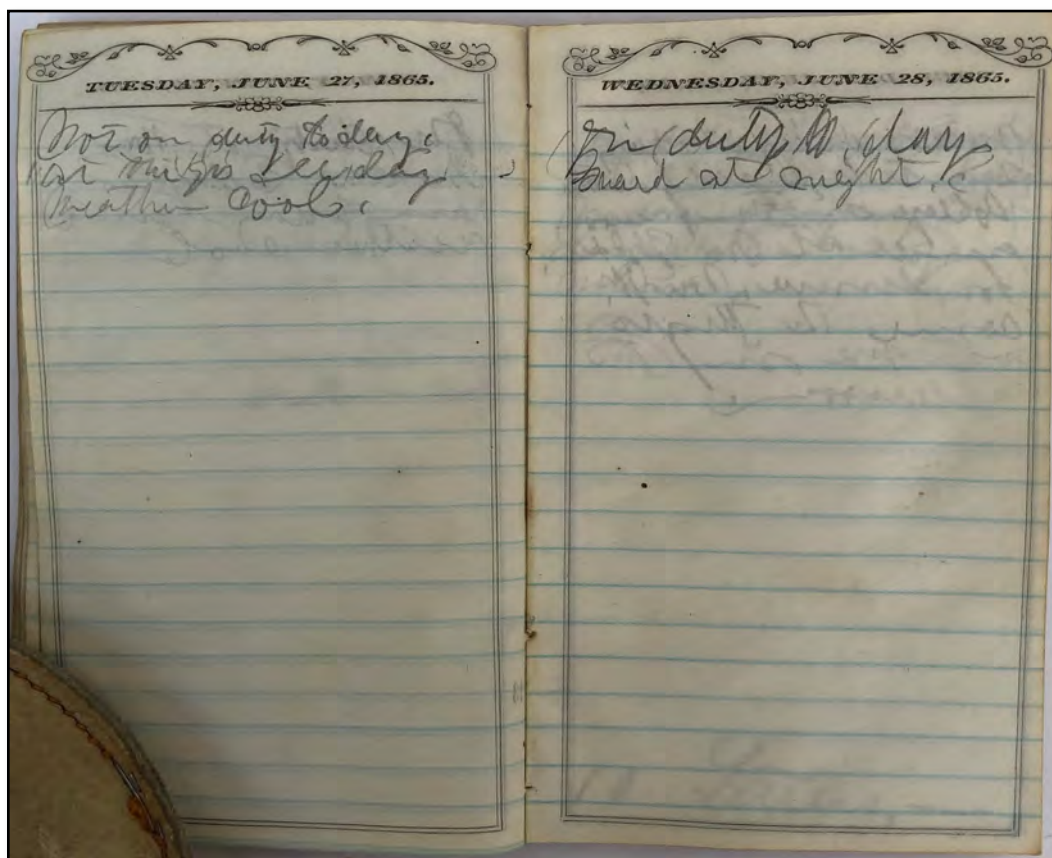 TUESDAY, JUNE 27, 1865.
Not on duty to day.
at
Weather Cool.
WEDNESDAY, JUNE 28, 1865.
duty to day
Guard at night.